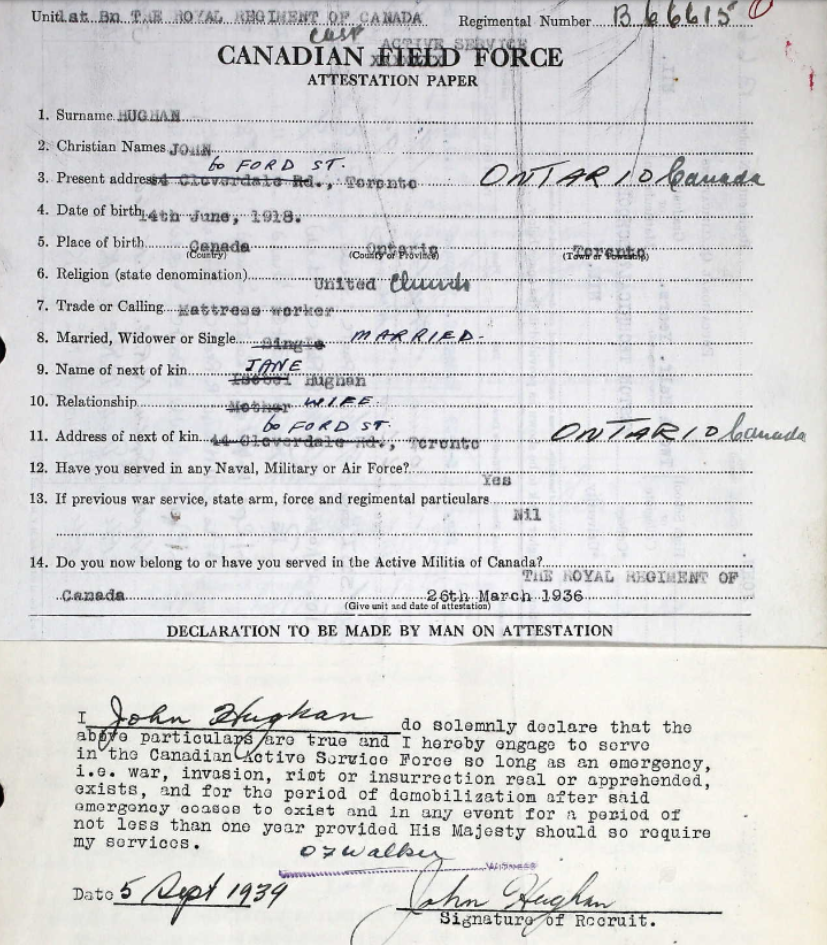 Unit 1st Bn. THE ROYAL REGIMENT OF CANADA Regimental Number B 66615
ACTIVE SERVICE
CANADIAN FIELD FORCE
ATTESTATION PAPER
1. Surname HUGHAN
2. Christian Names JOHN
60 FORD ST.
3. Present address 44 Cloverdale Rd., Toronto ONTARIO Canada
4. Date of birth 14th June, 1918.
5. Place of birth Canada Ontario Toronto
(Country) (County or Province) (Town or Township)
6. Religion (state denomination) United Church
7. Trade or Calling Mattress worker
8. Married, Widower or Single Single MARRIED.
JANE
9. Name of next of kin Isobel Hughan
10. Relationship Mother WIFE
60 FORD ST.
11. Address of next of kin 44 Cloverdale Rd., Toronto ONTARIO Canada
12. Have you served in any Naval, Military or Air Force?
Yes
13. If previous war service, state arm, force and regimental particulars
Nil
14. Do you now belong to or have you served in the Active Militia of Canada?
THE ROYAL REGIMENT OF
Canada 26th March 1936
(Give unit and date of attestation)
DECLARATION TO BE MADE BY MAN ON ATTESTATION
I John Hughan do solemnly declare that the
above particulars are true and I hereby engage to serve
in the Canadian Active Service Force so long as an emergency,
i.e. war, invasion, riot or insurrection real or apprehended,
exists, and for the period of demobilization after said
emergency ceases to exist and in any event for a period of
not less than one year provided His Majesty should so require
my services.
OF Walker
Witness
Date 5 Sept 1939 John Hughan
Signature of Recruit.